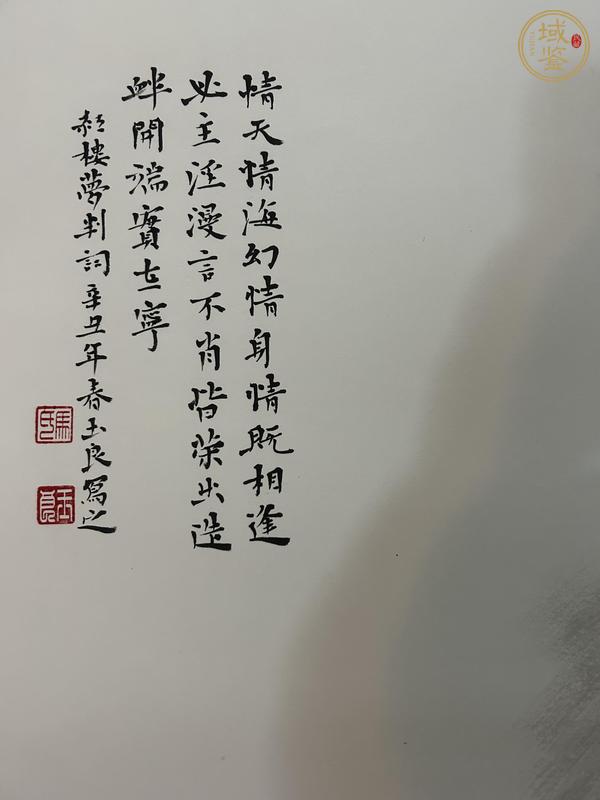 情天情海幻情身情既相逢
必主淫漫言不肖皆荣出造
衅開端實在寧
紅樓夢判詞辛丑年春玉良寫之
馬氏
玉良
域鉴